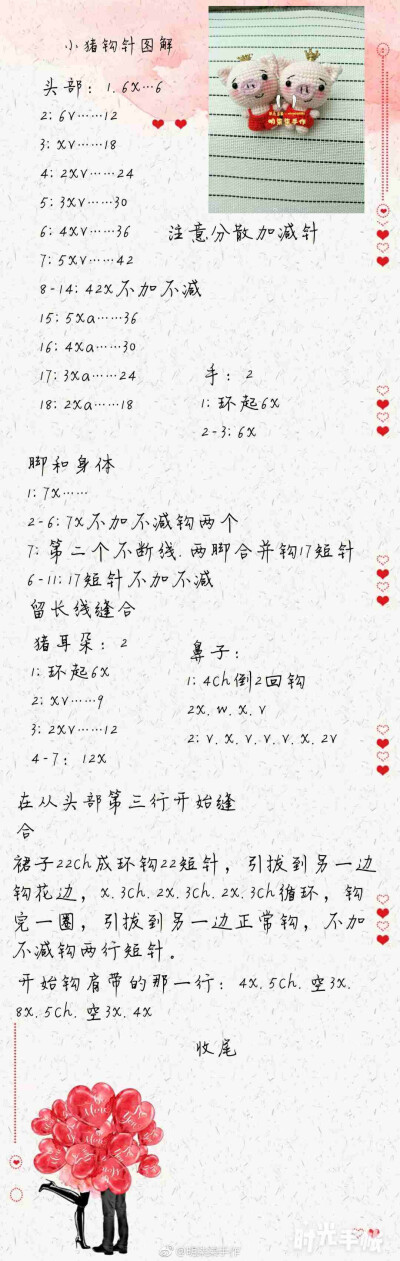 小猪钩针图解
头部：1.6X…6
2: 6V……12
3: XV……18
4: 2XV……24
5: 3XV……30
6: 4XV……36
注意分散加减针
7: 5XV……42
8-14: 42X不加不减
15: 5Xa……36
16: 4Xa……30
17: 3Xa……24
18: 2Xa……18
手：2
1: 环起6X
2-3: 6X
脚和身体
1: 7X……
2-6: 7X不加不减钩两个
7: 第二个不断线.两脚合并钩17短针
6-11: 17短针不加不减
留长线缝合
猪耳朵：2
1: 环起6X
2: XV……9
3: 2XV……12
4-7：12X
鼻子：
1: 4Ch倒2回钩
2X.W.X.V
2: V.X.V.V.V.X.2V
在从头部第三行开始缝
合
裙子22Ch成环钩22短针，引拔到另一边
钩花边，X.3Ch.2X.3Ch.2X.3Ch循环，钩
完一圈，引拔到另一边正常钩，不加
不减钩两行短针。
开始钩肩带的那一行：4X.5Ch.空3X.
8X.5Ch.空3X.4X
收尾
时光手帐